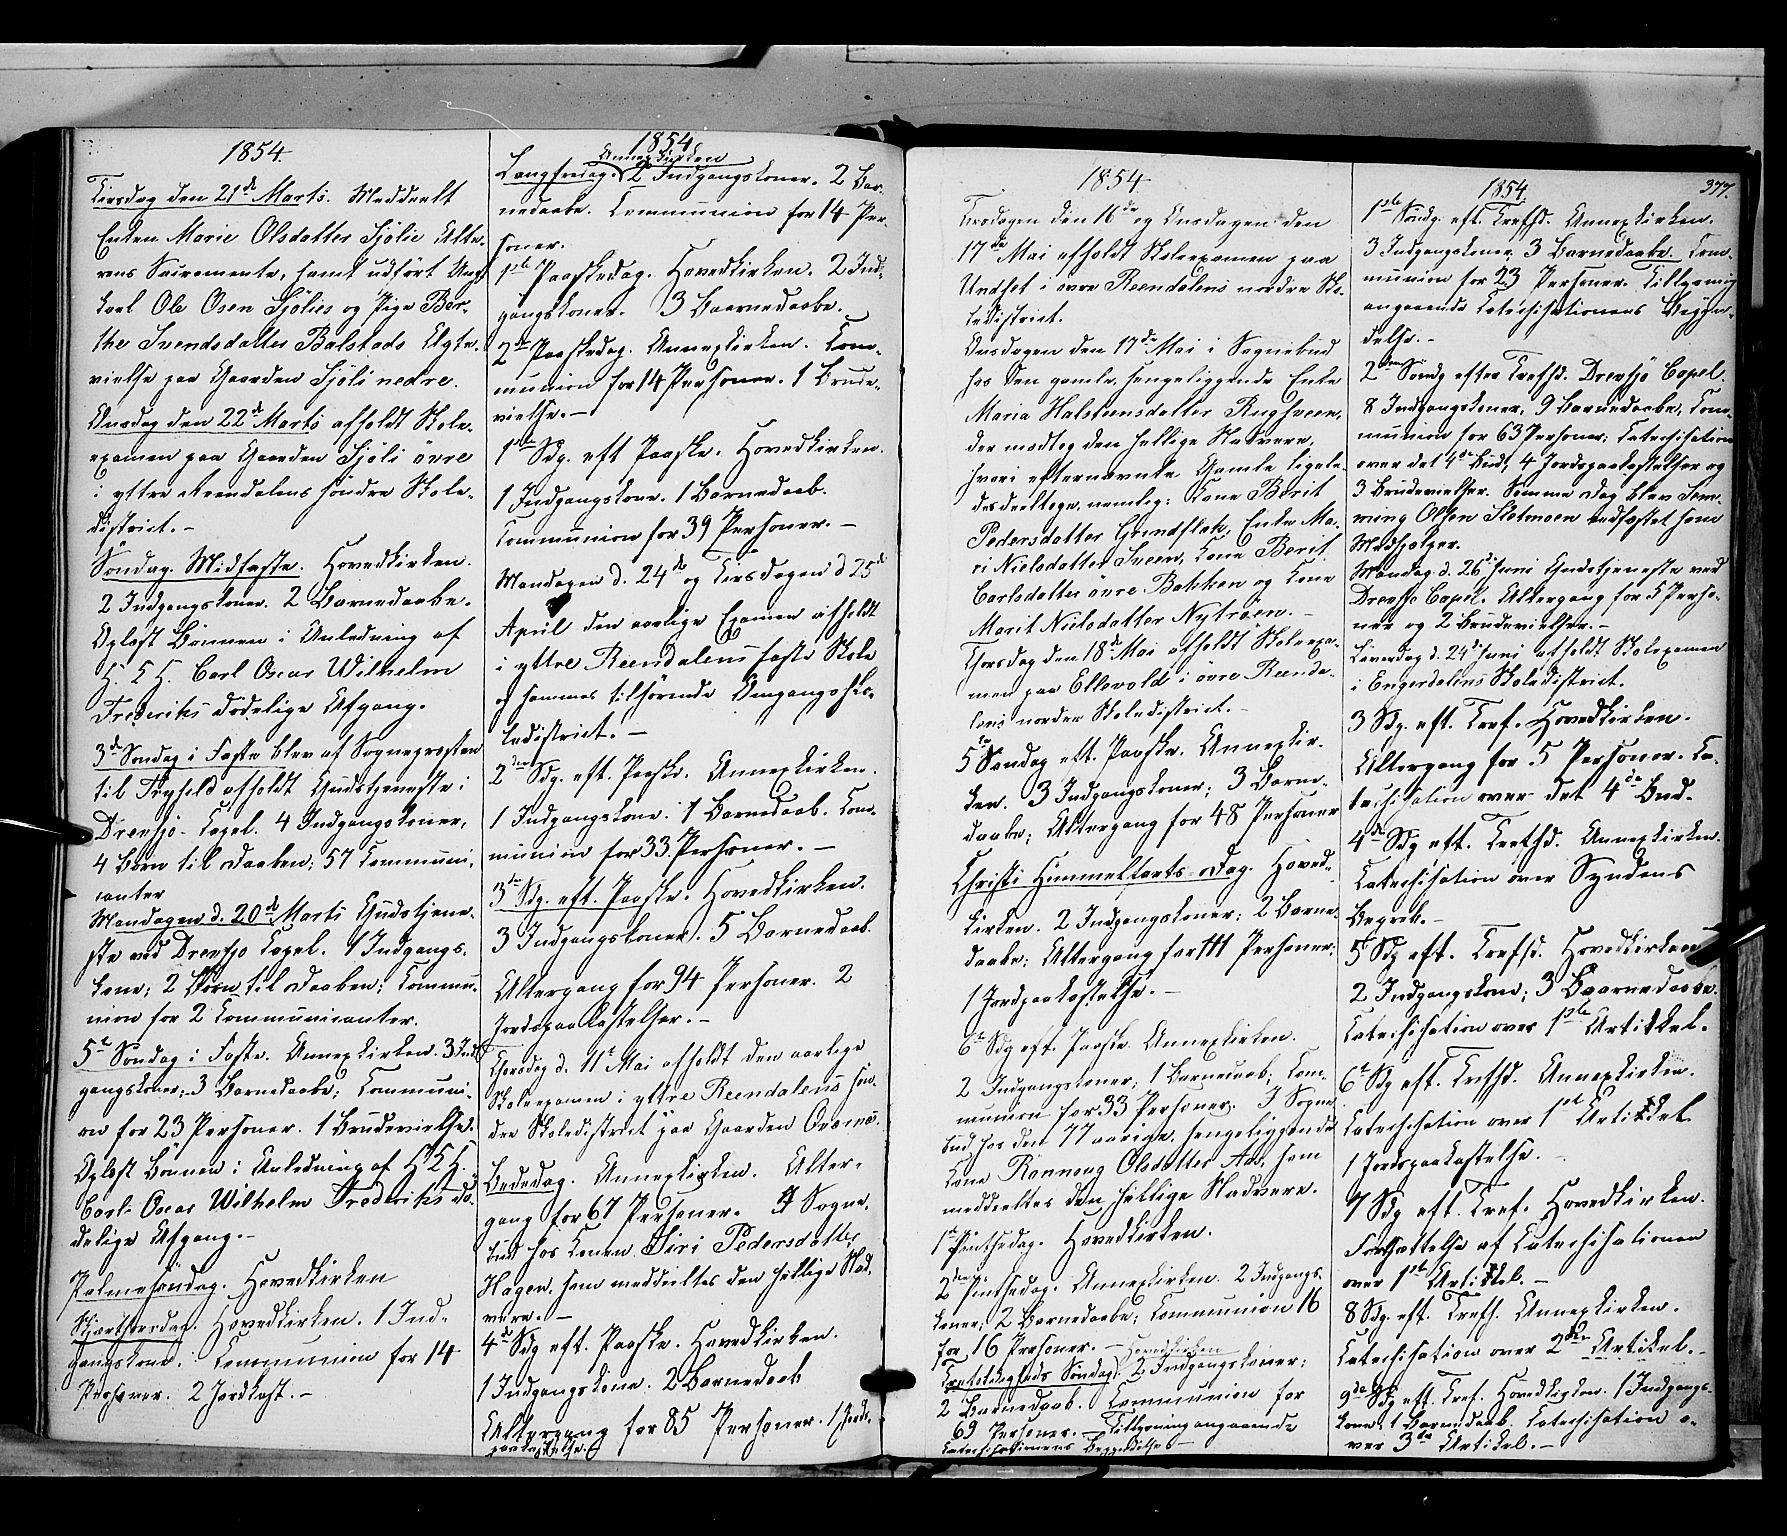 1854.
Tirsdag den 21de Marts. Meddeelt
Enken Marie Olsdatter Sjölie Alte-
rens Sacramente, samt udført Ung-
karl Ole Osen Sjölies og Pige Ber-
the Svendsdatter Bålstads Ægte-
vielse paa Gaarden Sjöli nedre.
Onsdag den 22de Marts afholdt Skole-
examen paa Gaarden Sjöli övre
i yttre Reendalens söndre Skole-
district.-
Söndag Midfaste. Hovedkirken.
2 Indgangskoner. 2 Barnedaabe.
Oplæst Bönnen i Anledning af
H. K. H. Carl Oscar Wilhelm
Frederiks dödelige Afgang.
3de Söndag i Faste blev af Sognepræsten
til Trysild afholdt Gudstjeneste i
Drevsjo- Capel. 4 Indgangskoner,
4 Børn til Daaben; 57 Communi-
canter
Mandagen d. 20de Marts Gudstjene-
ste ved Drevsjo Capel. 1 Indgangs-
kone; 2 Børn til Daaben; Commu-
nion for 2 Communicanter.
5te Söndag i Faste. Annexkirken. 3 Ind-
gangskoner; 3 Barnedaabe; Communi-
on for 23 Personer. 1 Brudevielse.
Oplæst Bönnen i Anledning af H. K. H.
Carl Oscar Wilhelm Frederiks dö-
delige Afgang.-
Palmesöndag. Hovedkirken
Skjærthorsdag. Hovedkirken. 1 Ind-
gangskone; Communion for 14
Personer. 2 Jordkast.-
1854
Annexkirken
Langfredag. 2 Indgangskoner. 2 Bar-
nedaabe. Communion for 14 Per-
soner.
1ste Paaskedag. Hovedkirken. 2 Ind-
gangskoner. 3 Baarnedaabe.
2den Paaskedag. Annexkirken. Com-
munion for 14 Personer. 1 Brude-
vielse.-
1ste Sdg. eft Paaske. Hovedkirken.
1 Indgangskone. 1 Barnedaab.
Communion for 39 Personer.-
Mandagen d. 24de og Tirsdagen d 25de
April den aarlige Examen afholdt
i yttre Reendalens faste Skole
og sammes tilhörende Omgangssko-
ledistrict.-
2den Sdg. eft. Paaske. Annexkirken.
1 Indgangskone. 1 Barnedaab. Com-
munion for 33 Personer.-
3die Sdg. eft. Paaske. Hovedkirken.
3 Indgangskoner. 5 Barnedaab.
Altergang for 94 Personer. 2
Jordspaakastelser.-
Thorsdag d. 11te Mai afholdt den aarlige
Skoleexamen i yttre Reendalens sön-
dre Skoledistrict paa Gaarden
Bededag. Annexkirken. Alter-
gang for 67 Personer. I Sogne-
bud hos Konen Siri Pedersdatter
Hagen, som meddeeltes den hellige Nad-
vere.-
4de Sdg eft. Paaske. Hovedkirken.
1 Indgangskone. 2 Barnedaab
Altergang for 85 Personer. 1 Jords-
paakastelse.
1854
Tirsdagen den 16de og Onsdagen den
17de Mai afholdt Skoleexamen paa
Undset i övre Reendalens nordre Sko-
ledistrict.
Onsdagen den 17de Mai i Sognebud
hos den gamle, sengeliggende Enke
Maria Halsteensdatter Rugsveen,
der modtog den hellige Nadvere,
hvori efternævnte Gamle ligele-
des deeltoge, nemlig: Kone Berit
Pedersdatter Grindflek, Enke Ma-
ri Nielsdatter Sveen, Kone Berit
Carlsdatter övre Bakken og Kone
Marit Nielsdatter Nytröen.-
Thorsdag den 18de Mai afholdt Skoleexa-
men paa Ellevold i övre Reenda-
lens nordre Skoledistrict.-
5te Söndag eft. Paaske. Annexkir-
ken. 3 Indgangskoner; 3 Barne-
daabe; Altergang for 48 Personer
Christi Himmelfarts-Dag. Hoved-
kirken. 2 Indgangskoner; 2 Barne-
daabe; Altergang for 111 Personer;
1 Jordpaakastelse.-
6te Sdg eft. Paaske Annexkirken.
2 Indgangskoner; 1 Barnedaab; Com-
munion for 33 Personer. I Sogne-
bud hos den 77 aarige, sengeliggende
Kone Rönnoug Olsdatter Aas, som
meddeeltes den hellige Nadvere.
1ste Pintsedag. Hovedkirken.
2den Pintsedag. Annexkirken. 2 Indgangs-
koner; 2 Barnedaabe; Communion 16
for 16 Personer.- Hovedkirken
Trefoldigheds Söndag. 2 Indgangskoner;
2 Barnedaab. Communion for
69 Personer. Tillysning angaaende
Catechisationens Begyndelse.-
1854.
377.
1ste Söndg. eft. Trefsd. Annexkirken.
3 Indgangskoner. 3 Barnedaabe. Com-
munion for 23 Personer. Tillysning
angaaende Catechisationens Begyn-
delse.-
2den Söndg efter Trefsd. Drevsjö Capel.
8 Indgangskoner, 9 Barnedaabe, Com-
munion for 63 Personer; Catechisation
over det 4de Bud, 4 Jordspaakastelser og
3 Brudevielser. Samme Dag blev Sem-
ming Olsen Sletmoen indfæstet som
Medhjælper.
Mandag d. 26de Juni Gudstjeneste ved
Drevsjo Capel. Altergang for 5 Perso-
ner og 2 Brudevielser.-
Löverdag d. 24de Juni afholdt Skolexamen
i Engerdalens Skoledistrict.
3 Sdg. eft. Tref. Hovedkirken.
Altergang for 5 Personer. Ca-
techisation over det 4de Bud.
4de Sdg eft. Trefsd. Annexkirken.
Catechisation over Syndens
Begreb.-
5 Sdg eft. Trefsd. Hovedkirken
2 Indgangskone; 3 Baarnedaabe.
Catechisation over 1ste Artikkel.
6te Sdg eft. Trefsd. Annexkirken.
Catechisation over 1ste Artikkel
1 Jordspaakastelse.
7 Sdg eft. Tref. Hovedkirken.
Forsættelse af Catechisationen
over 1ste Artikkel.-
8 Sdg. eft. Trefs. Annexkirken.
Catechisation over 2den Artikel.-
9de Sdg eft. Tref. Hovedkirken. 1 Indgangs-
kone. 1 Barnedaab. Catechisation o-
ver 3die Artikel.-